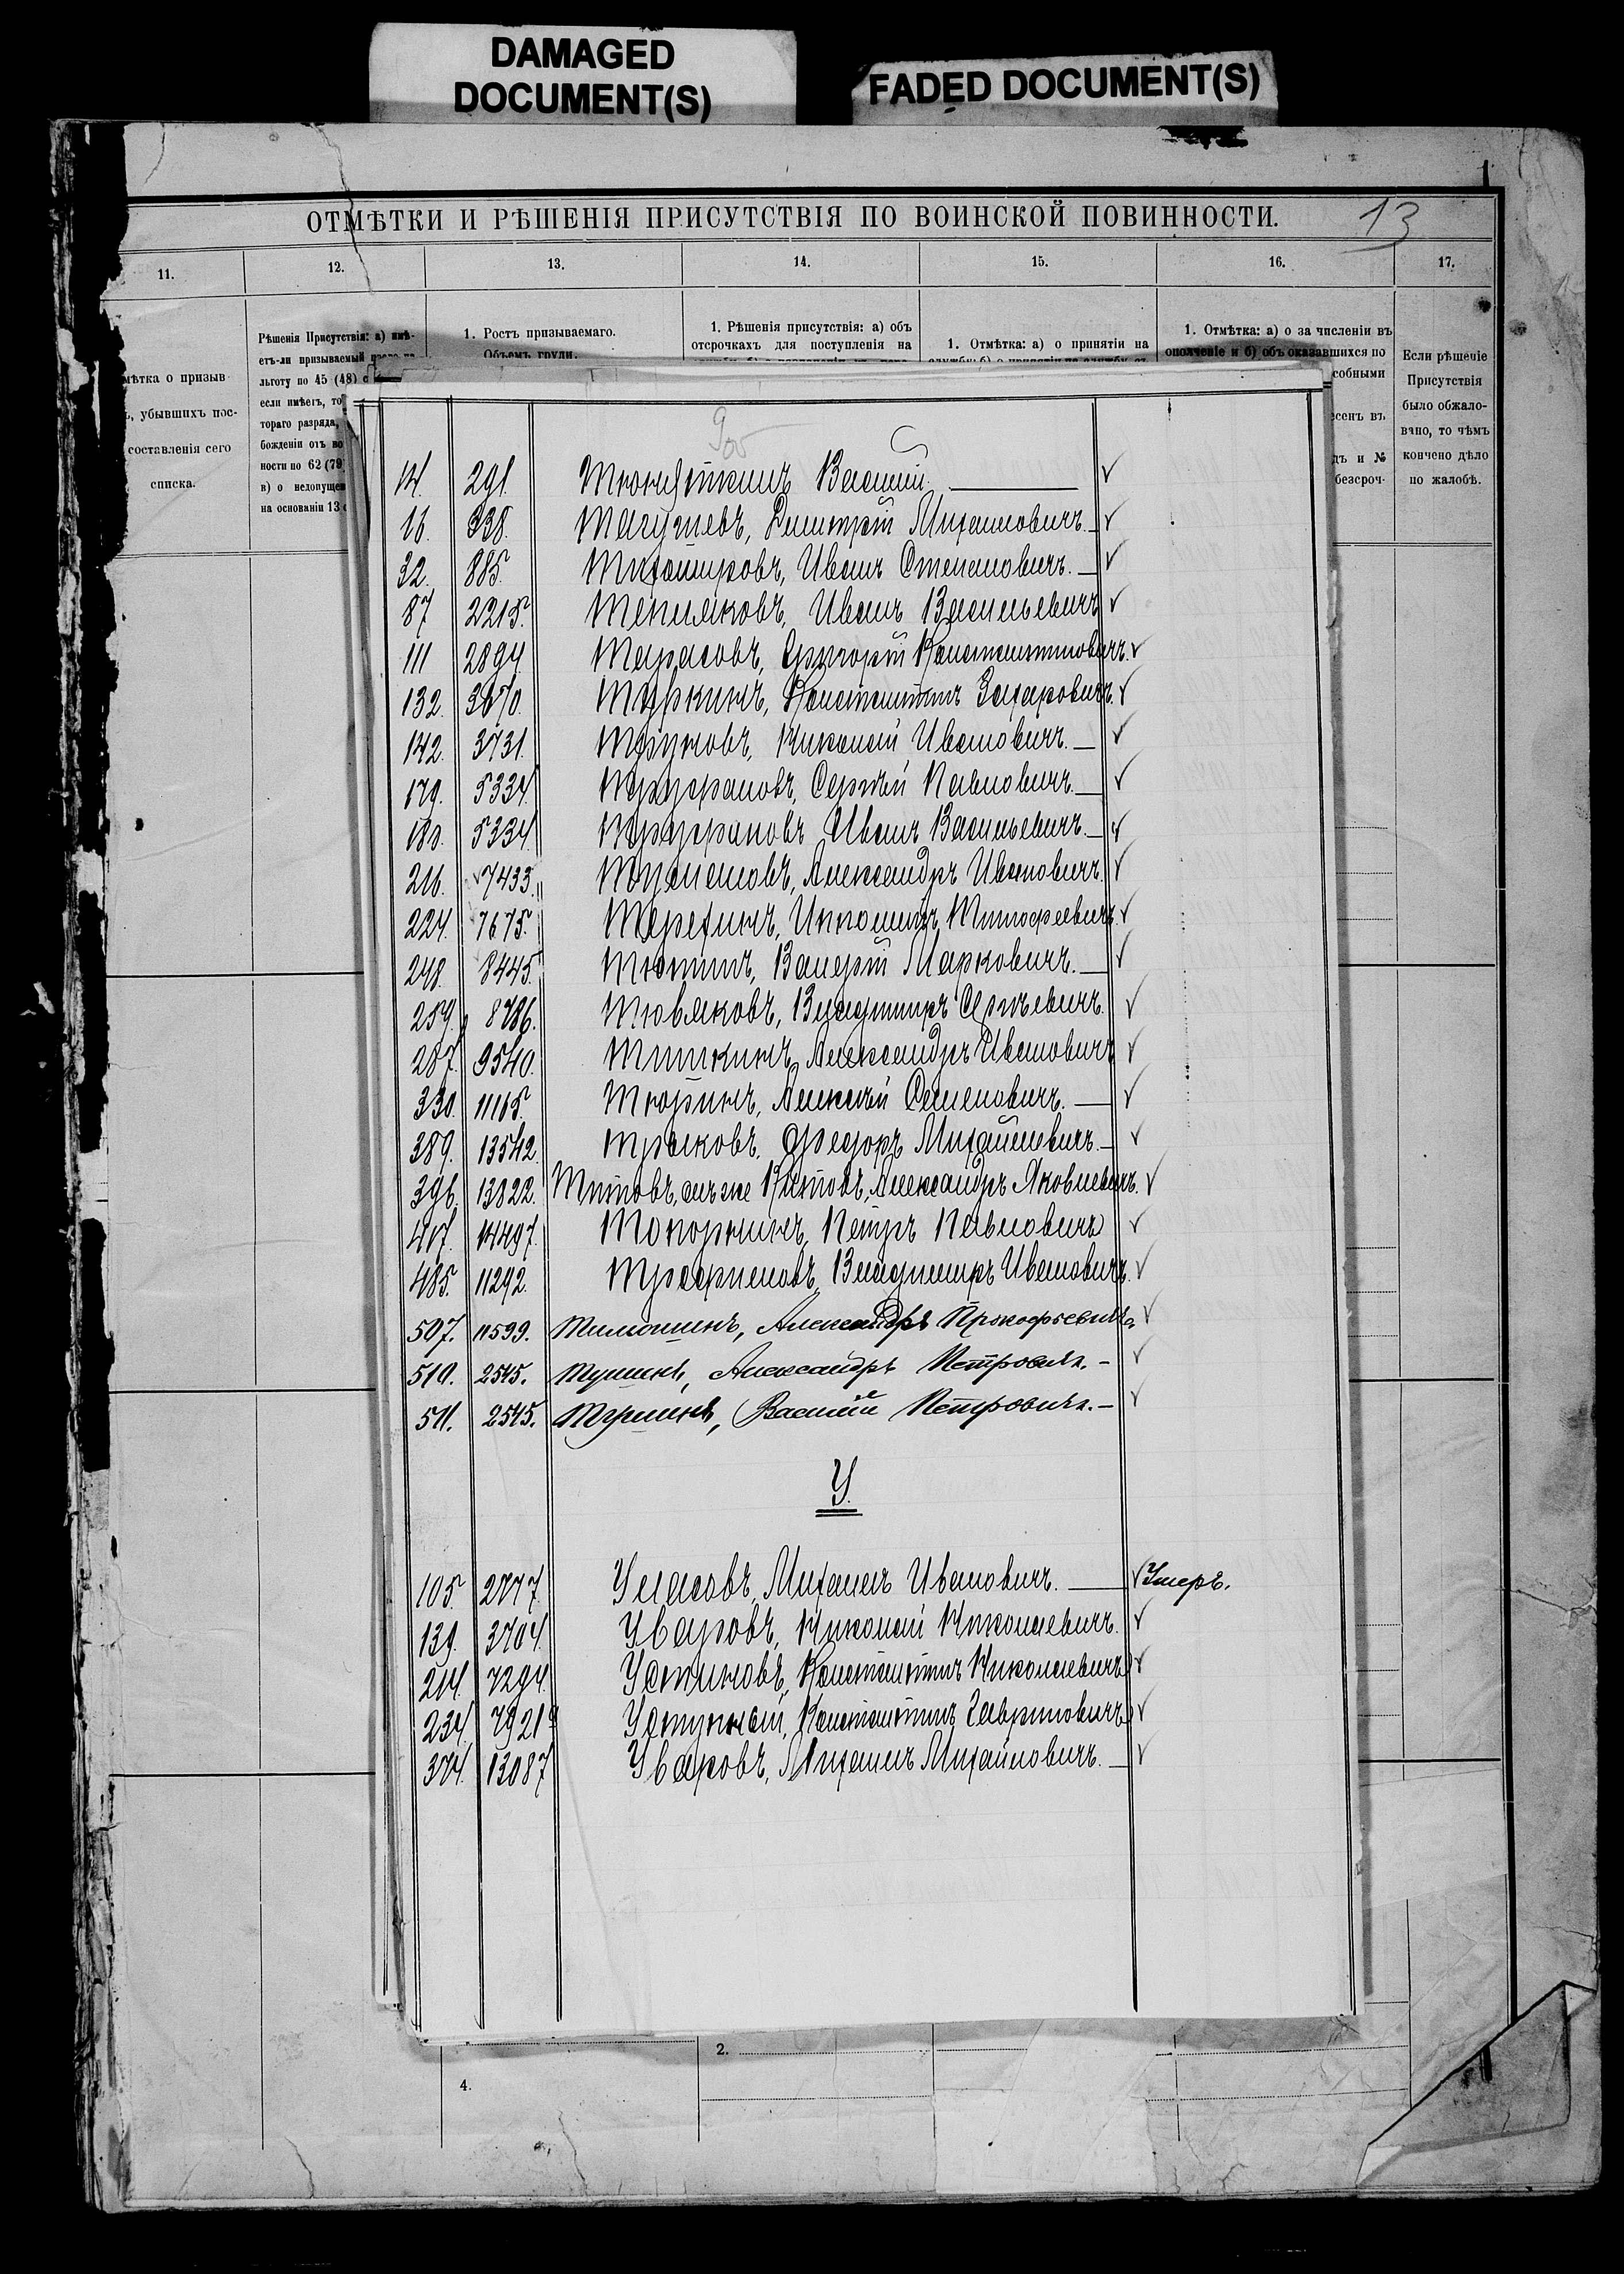 DAMAGED
DOCUMENT(S)
FADED DOCUMENT(S)
ОТМѢТКИ И РѢШЕНІЯ ПРИСУТСТВІЯ ПО ВОИНСКОЙ ПОВИННОСТИ.
13
11. 12. 13. 14. 15. 16. 17.
мѣтка о призыв
ъ, убывшихъ пос-
составленія сего
списка.
Рѣшенія Присутствія: а) имѣ-
етъ-ли призываемый право на
льготу по 45 (48) с
если имѣетъ, то
тораго разряда,
божденіи отъ во
ности по 62 (79
в) о недопущен
на основаніи 13 с
1. Ростъ призываемаго.
Объемъ груди.
1. Рѣшенія присутствія: а) объ
отсрочкахъ для поступленія на
1. Отмѣтка: а) о принятіи на
службу; б) о принятіи на службу съ
1. Отмѣтка: а) о за численіи въ
ополченіе и б) объ оказавшихся по
собными
сенъ въ
дъ и №
безсроч-
Если рѣшеніе
Присутствія
было обжало-
вано, то чѣмъ
кончено дѣло
по жалобѣ.
14. 291. Василій. — √
16. 338. Дмитрій Михаиловичъ. — √
32. 885. Иванъ Степановичъ. — √
87 2215. Тепляковъ, Иванъ Васильевичъ √
111 2894. Тарасовъ, Григорій Константиновичъ. √
132. 3670. Туркинъ, Константинъ Захаровичъ. √
142. 3731. Николай Ивановичъ. — √
179. 5334. Сергѣй Павловичъ. — √
180. 5334. Иванъ Васильевичъ. — √
216. √7433. Александръ Ивановичъ. √
224. 7675. Терехинъ, Иннокентій Тимофеевичъ. √
248. 8445. Тютинъ, Валерій Марковичъ. — √
259. 8786. Тювяковъ, Владимиръ Сергѣевичъ. √
287. 9540. Тишкинъ, Александръ Ивановичъ √
330. 11165. Тюринъ, Алексѣй Семеновичъ. — √
389. 13542. Федоръ Михайловичъ. — √
396. 13822. Титовъ, онъ же Китовъ, Александръ Яковлевичъ. √
417. 14497. Топоркинъ, Петръ Павловичъ √
485. 11292. Трофимовъ, Владимиръ Ивановичъ. √
507. 11599. Тимошинъ, Александръ Прокофьевичъ √
510. 2545. Александръ Петровичъ. — √
511. 2545. Василій Петровичъ. — √
У.
105. 2877. Уласовъ, Михаилъ Ивановичъ. — √ Умеръ.
139. 3704. Уваровъ, Николай Николаевичъ. √
214. 7294. Устиновъ, Константинъ Николаевичъ √
234. 7921. Константинъ Гавриловичъ √
374. 13087 Уваровъ, Михаилъ Михайловичъ. — √
2.
4.